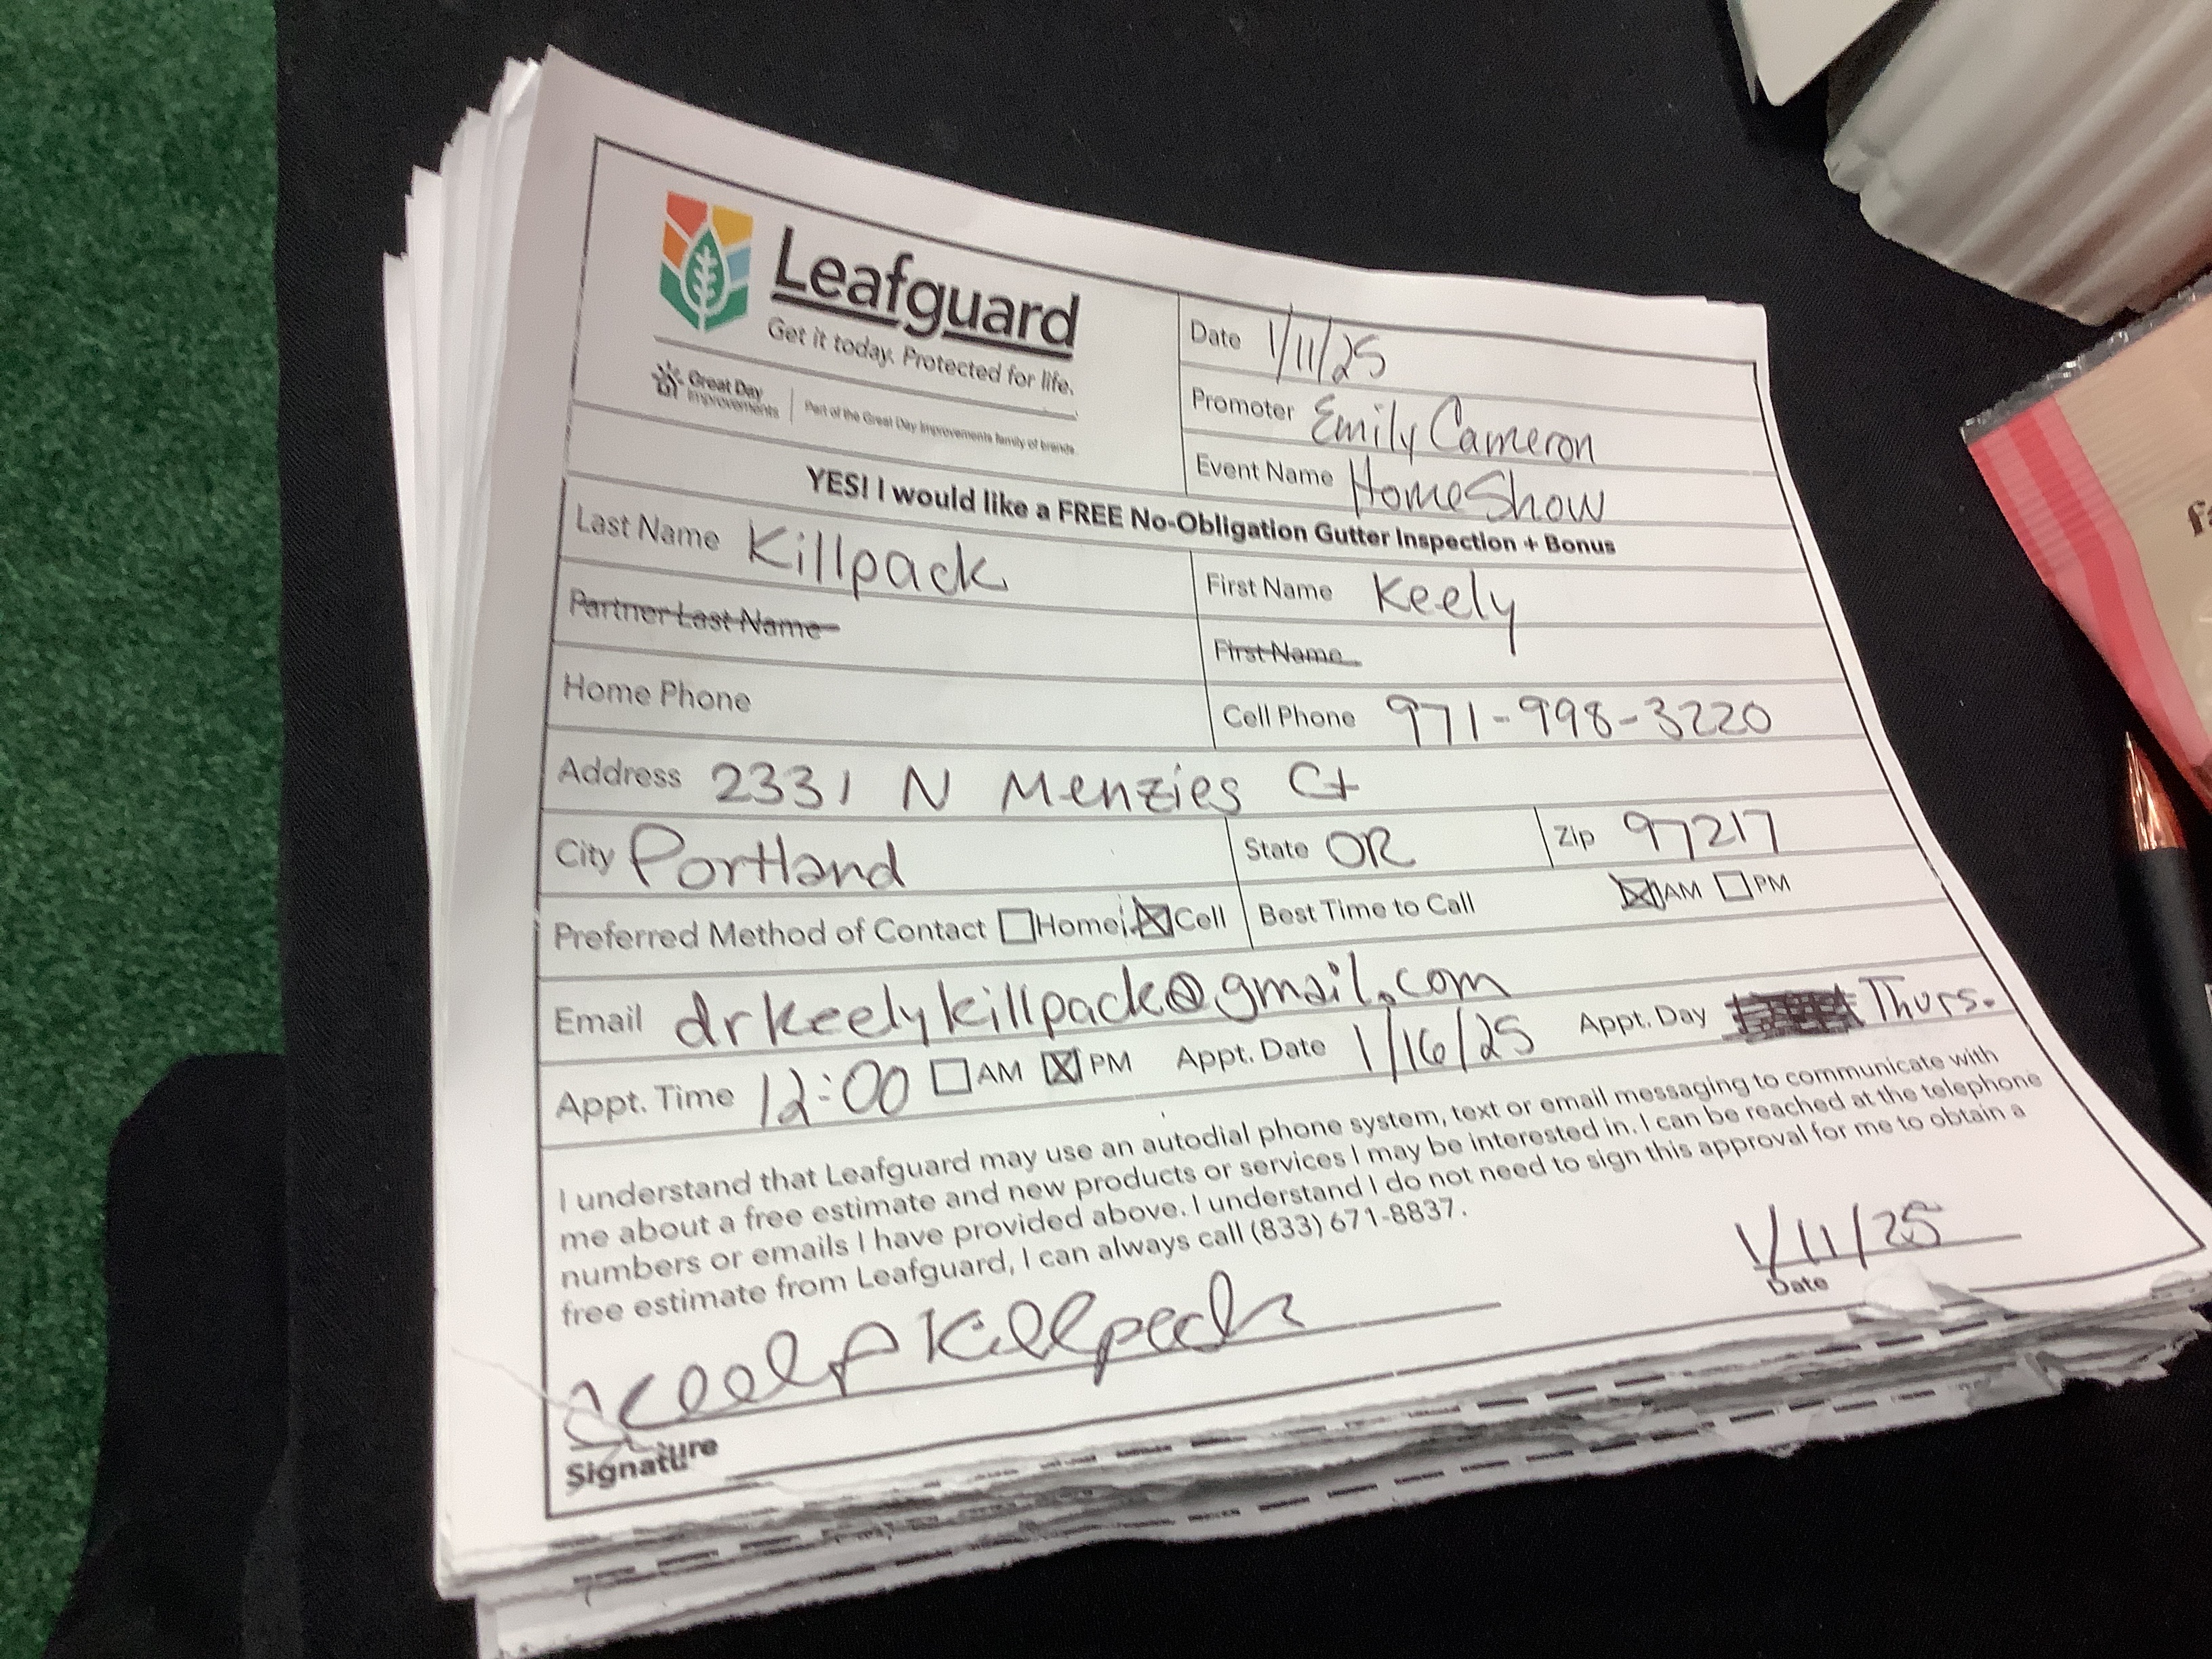 Leafguard
Get it today. Protected for life.
Great Day Improvements
Part of the Great Day Improvements family of brands
Date 1/11/25
Promoter Emily Cameron
Event Name HomeShow
YES! I would like a FREE No-Obligation Gutter Inspection + Bonus
Last Name Killpack First Name Keely
Partner Last Name First Name
Home Phone Cell Phone 971-998-3220
Address 2331 N Menzies Ct
City Portland State OR Zip 97217
Preferred Method of Contact Home Cell Best Time to Call AM PM
Email drkeelykillpack@gmail.com
Appt. Time 12:00 AM PM Appt. Date 1/16/25 Appt. Day Thurs.
I understand that Leafguard may use an autodial phone system, text or email messaging to communicate with
me about a free estimate and new products or services I may be interested in. I can be reached at the telephone
numbers or emails I have provided above. I understand I do not need to sign this approval for me to obtain a
free estimate from Leafguard, I can always call (833) 671-8837.
Keely Killpack 1/11/25
Signature Date